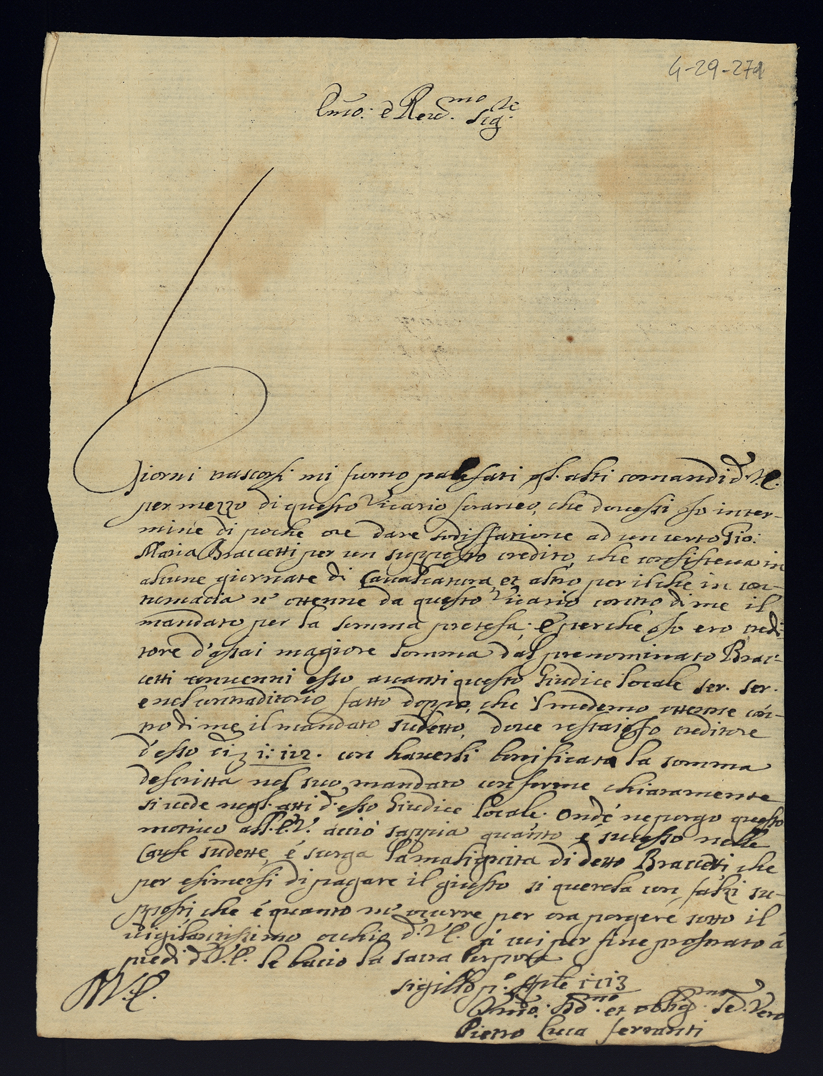 4-29-274
Emo: e Reumo Sigre
Giorni trascorsi mi furno palesati gl'alti comandi d'V.E.
per mezzo di questo Vicario foraneo, che dovessi Io in ter-
mine di poche ore dare sodisfatione ad un certo Gio:
Maria Braccetti per un supposto credito, che consisteva in
alcune giornate di Cavalcatura, et altro per il che in con-
tumacia n'ottenne da questo Vicario contro di me il
mandato per la somma pretesa; E perche Io ero credi-
tore d'assai magiore somma dal prenominato Brac-
cetti convenni esso avanti questo Giudice locale ser. ser.
e nel contraditorio fatto doppo, che l'medemo ottenne con-
tro di me il mandato sudetto, dove restai Io creditore
d'esso di con haverli bonificata la somma
descritta nel suo mandato conforme chiaramente
si vede negl'atti d'esso Giudice locale. Onde ne porgo questo
motivo all'E.V. acciò sappia quanto è sucesso nelle
Cause sudette, e surga la malignità di detto Braccetti che
per esimersi di pagare il giusto si querela con falzi su-
pposti, che é quanto m'ocurre per ora porgere sotto il
vigilantissimo occhio d'V.E. à cui per fine prostrato à
piedi d'V.E. le bacio la sacra Porpora
Sigillo po Aple 1713
V.E.
Umo: Dmo et obligmo Se Vero
Pietro Luca Ferranti